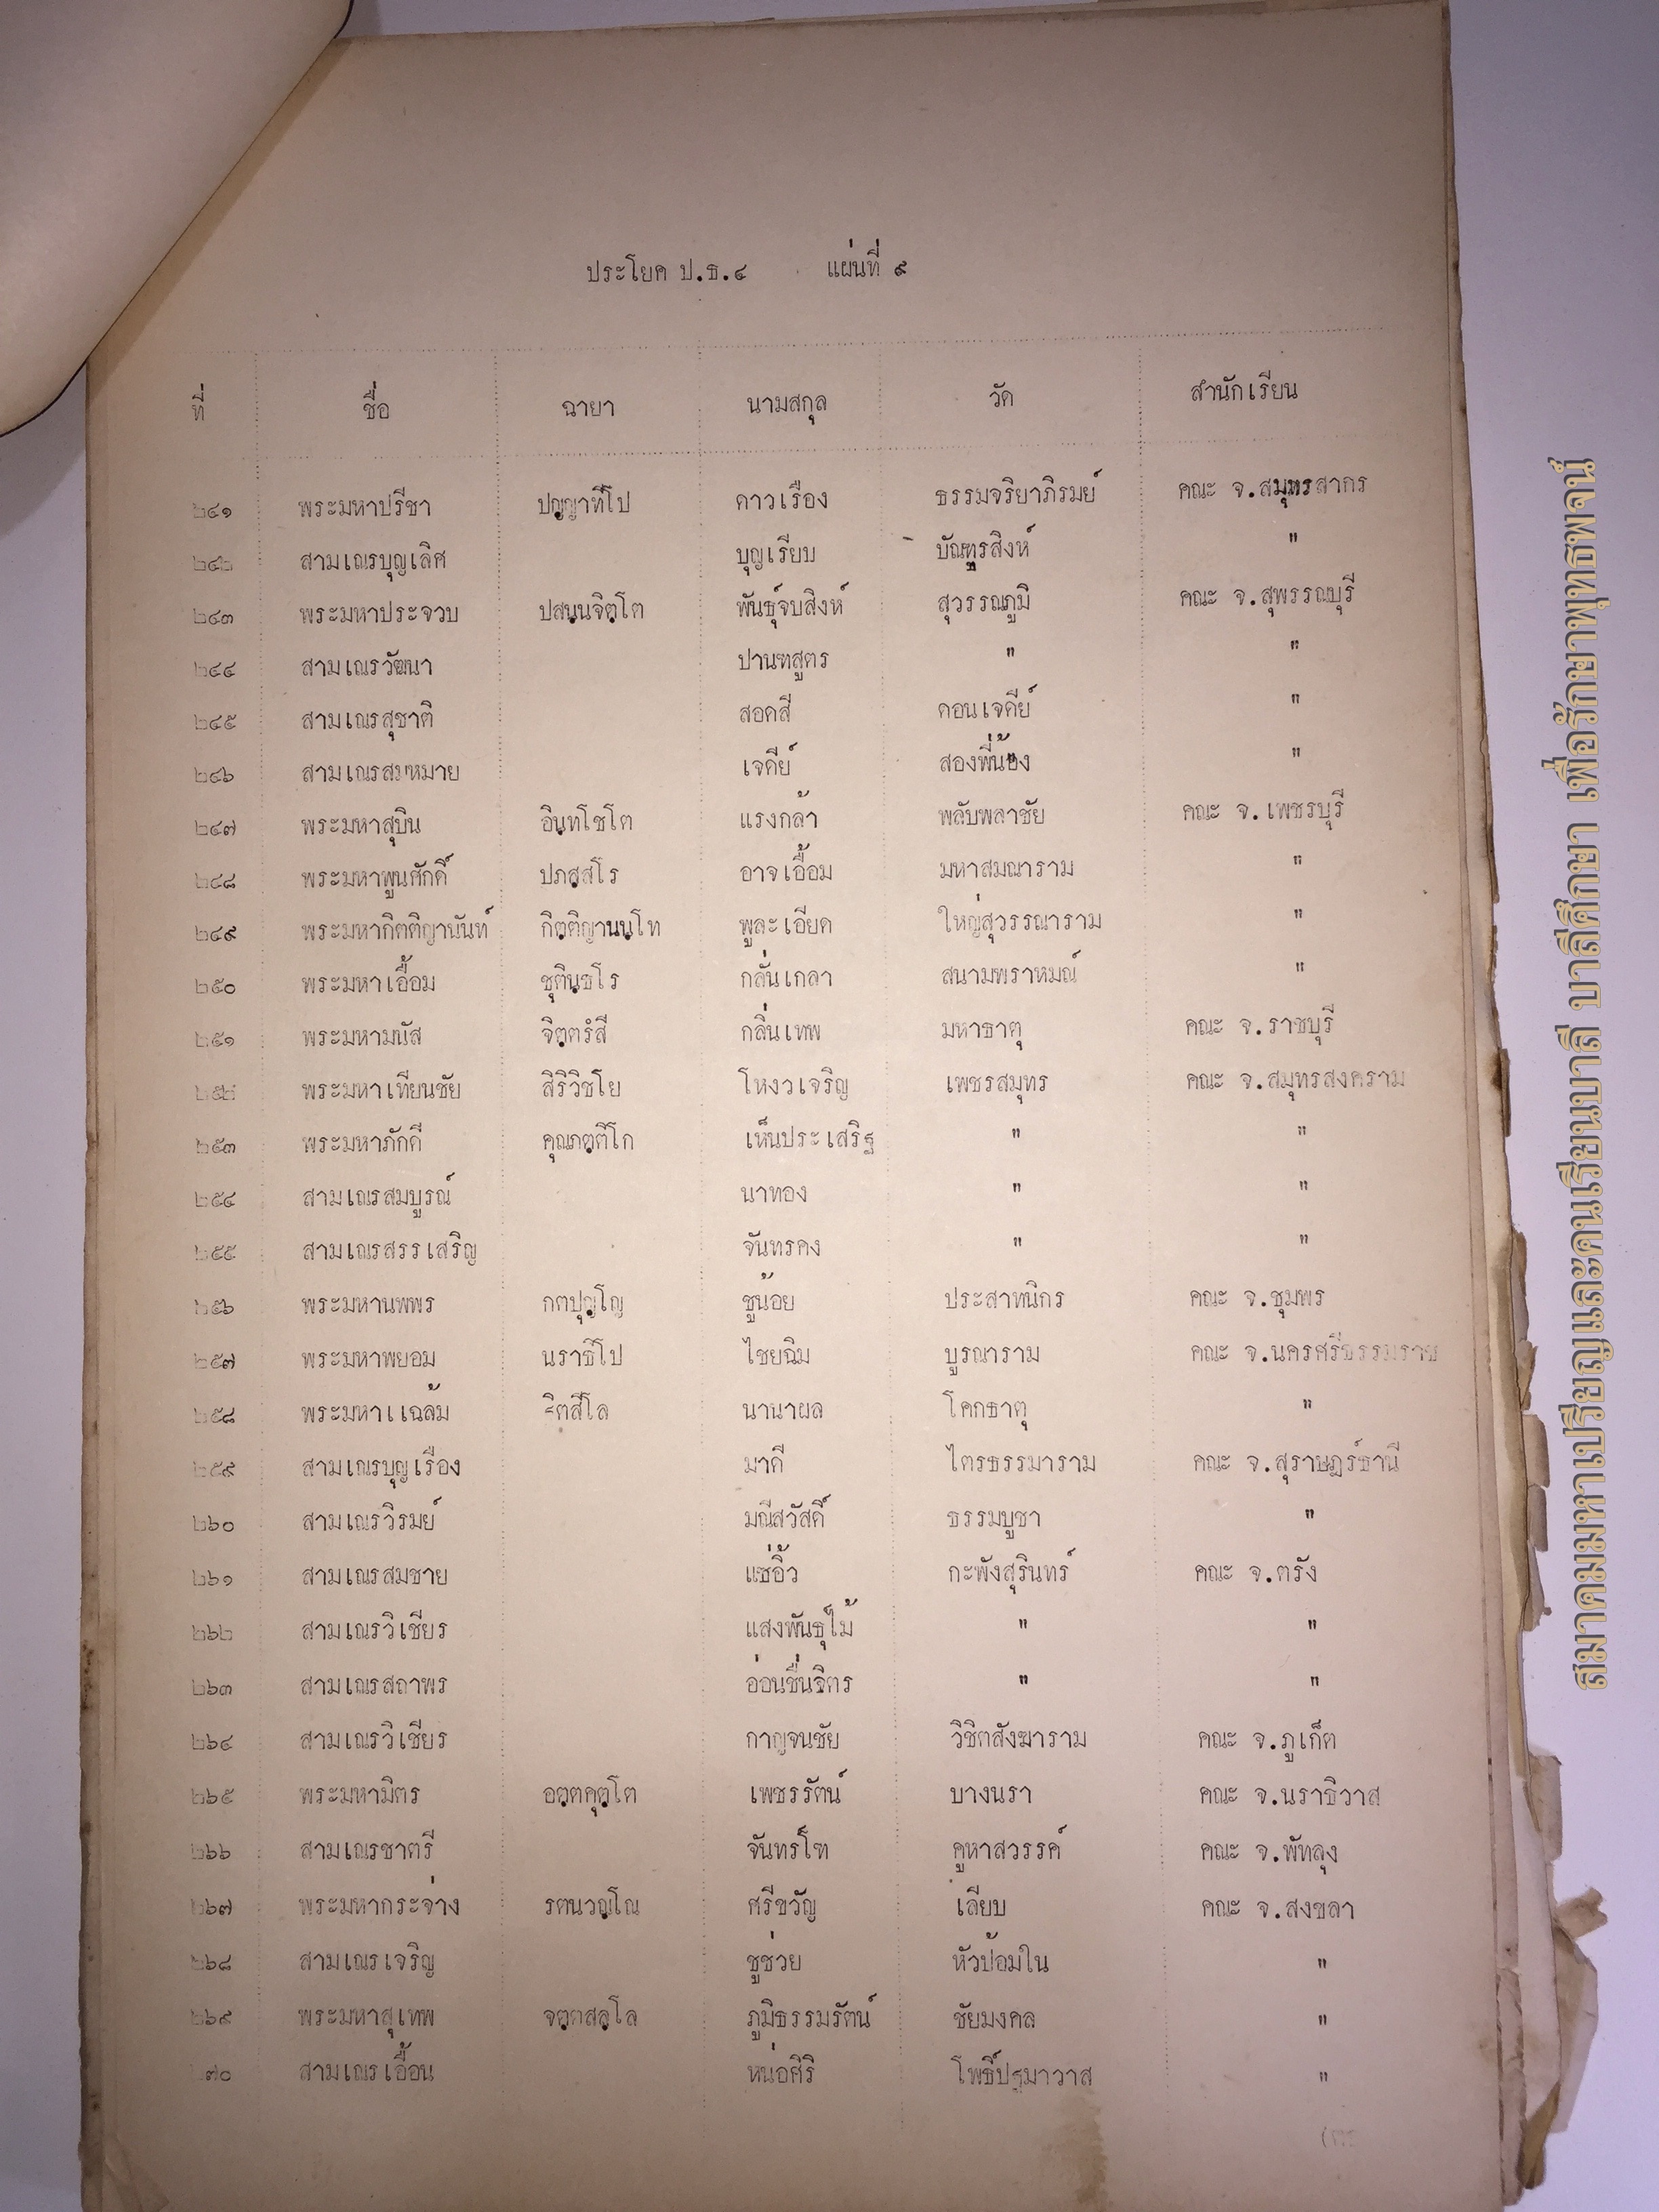 ประโยค ป.ธ.๔ แผ่นที่ ๙
ที่ ชื่อ ฉายา นามสกุล วัด สำนักเรียน
๒๔๑ พระมหาปรีชา ปญฺญาทีโป ดาวเรือง ธรรมจริยาภิรมย์ คณะ จ.สมุทรสากร
๒๔๒ สามเณรบุญเลิศ บุญเรียบ บัณฑูรสิงห์ "
๒๔๓ พระมหาประจวบ ปสนฺนจิตฺโต พันธุ์จบสิงห์ สุวรรณภูมิ คณะ จ.สุพรรณบุรี
๒๔๔ สามเณรวัฒนา ปานฑสูตร " "
๒๔๕ สามเณรสุชาติ สอดสี ดอนเจดีย์ "
๒๔๖ สามเณรสมหมาย เจดีย์ สองพี่น้อง "
๒๔๗ พระมหาสุบิน อินฺทโชโต แรงกล้า พลับพลาชัย คณะ จ.เพชรบุรี
๒๔๘ พระมหาพูนศักดิ์ ปภสฺสโร อาจเอื้อม มหาสมณาราม "
๒๔๙ พระมหากิตติญานันท์ กิตฺติญานนฺโท พูละเอียด ใหญ่สุวรรณาราม "
๒๕๐ พระมหาเอื้อม ชุตินฺธโร กลั่นเกลา สนามพราหมณ์ "
๒๕๑ พระมหามนัส จิตฺตรํสี กลิ่นเทพ มหาธาตุ คณะ จ.ราชบุรี
๒๕๒ พระมหาเทียนชัย สิริวิชโย โหงวเจริญ เพชรสมุทร คณะ จ.สมุทรสงคราม
๒๕๓ พระมหาภักดี คุณภตฺติโก เห็นประเสริฐ " "
๒๕๔ สามเณรสมบูรณ์ นาทอง " "
๒๕๕ สามเณรสรรเสริญ จันทรคง " "
๒๕๖ พระมหานพพร กตปุญฺโญ ชูน้อย ประสาทนิกร คณะ จ.ชุมพร
๒๕๗ พระมหาพยอม นราธิโป ไชยฉิม บูรณาราม คณะ จ.นครศรีธรรมราช
๒๕๘ พระมหาแฉล้ม นานาผล โคกธาตุ "
๒๕๙ สามเณรบุญเรือง มาดี ไตรธรรมาราม คณะ จ.สุราษฎร์ธานี
๒๖๐ สามเณรวิรมย์ มณีสวัสดิ์ ธรรมบูชา "
๒๖๑ สามเณรสมชาย แซ่อิ้ว กะพังสุรินทร์ คณะ จ.ตรัง
๒๖๒ สามเณรวิเชียร แสงพันธุ์ไม้ " "
๒๖๓ สามเณรสถาพร อ่อนชื่นจิตร " "
๒๖๔ สามเณรวิเชียร กาญจนชัย วิชิตสังฆาราม คณะ จ.ภูเก็ต
๒๖๕ พระมหามิตร อตฺตคุตฺโต เพชรรัตน์ บางนรา คณะ จ.นราธิวาส
๒๖๖ สามเณรชาตรี จันทร์โท คูหาสวรรค์ คณะ จ.พัทลุง
๒๖๗ พระมหากระจ่าง รตนวณฺโณ ศรีขวัญ เลียบ คณะ จ.สงขลา
๒๖๘ สามเณรเจริญ ชูช่วย หัวป้อมใน "
๒๖๙ พระมหาสุเทพ จตฺตสลฺโล ภูมิธรรมรัตน์ ชัยมงคล "
๗๐ สามเณรเอื้อน หน่อศิริ โพธิ์ปฐมาวาส "
สมาคมมหาเปรียญและคนเรียนบาลี บาลีศึกษา เพื่อรักษาพุทธพจน์